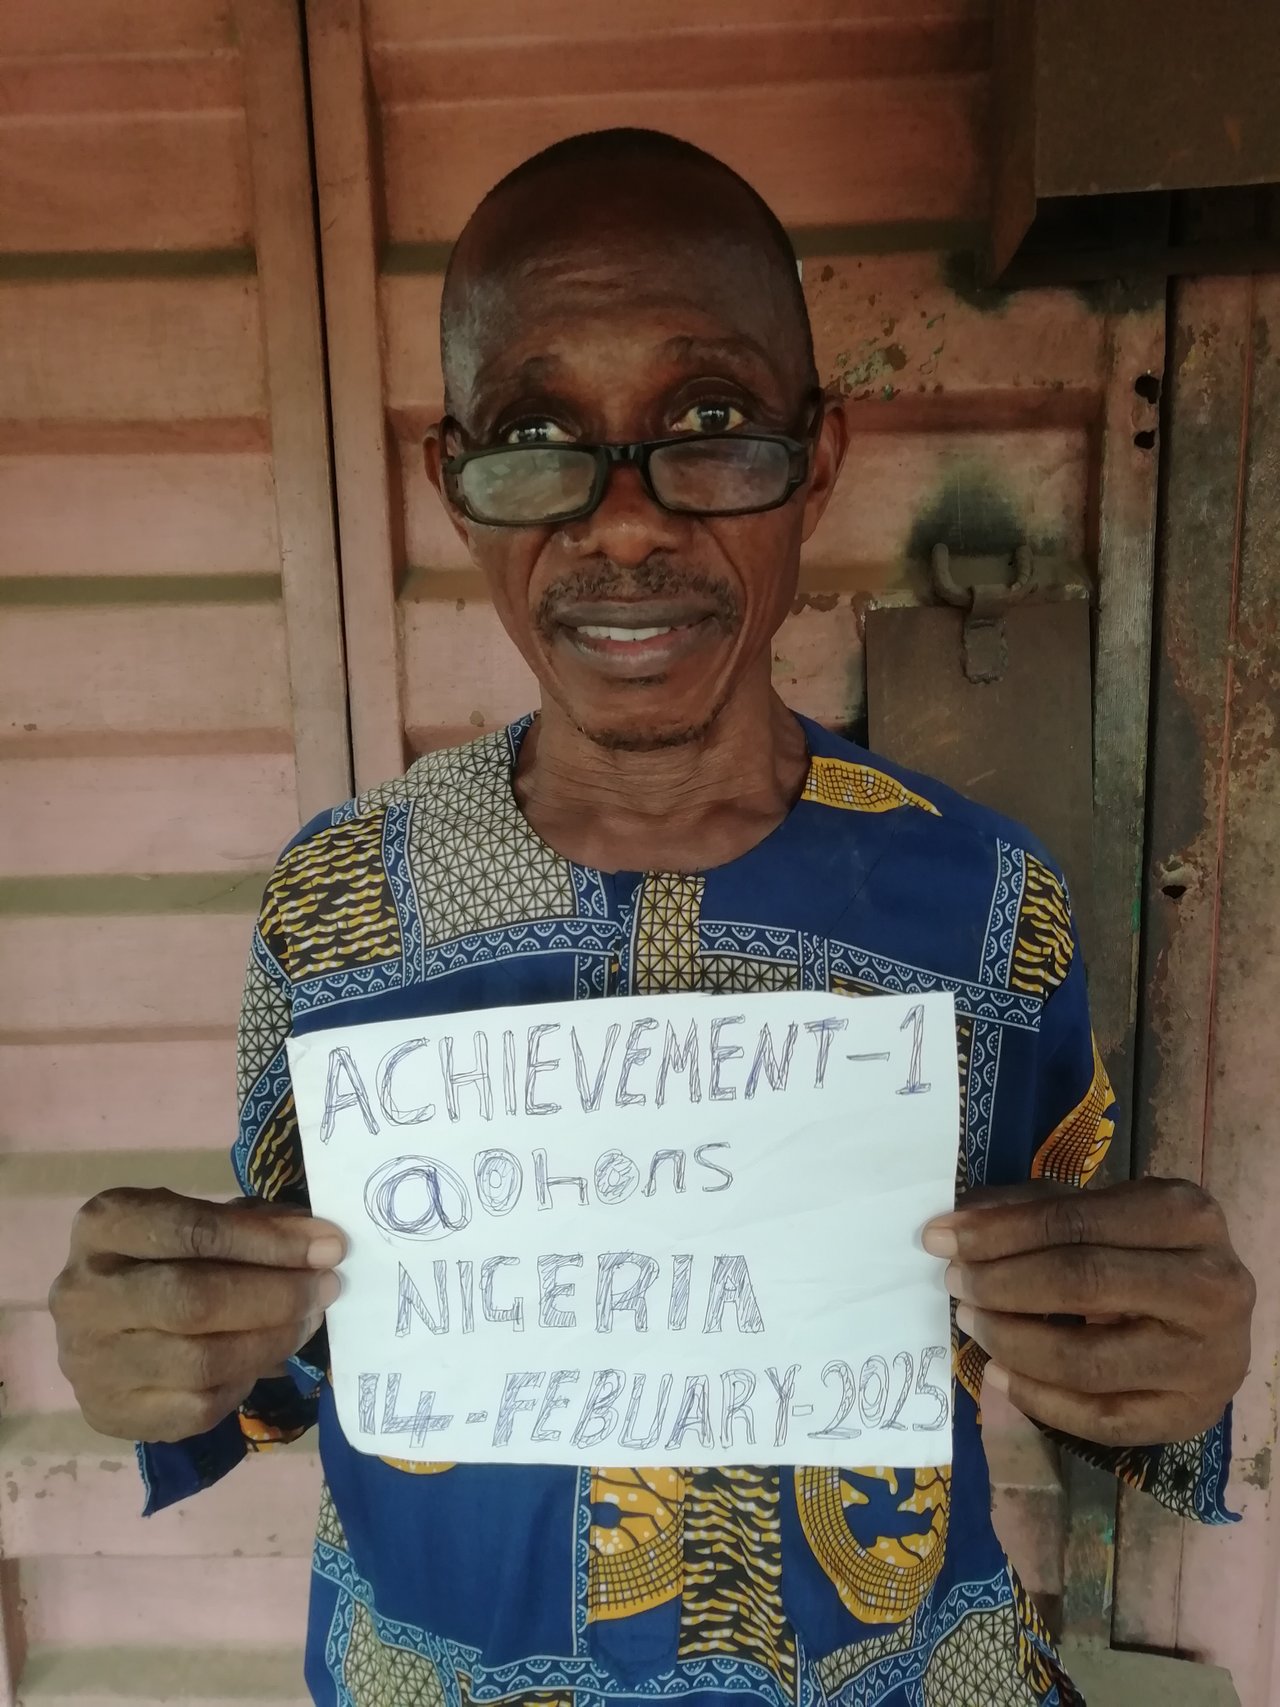 ACHIEVEMENT-1
@ohons
NIGERIA
14-FEBUARY-2025